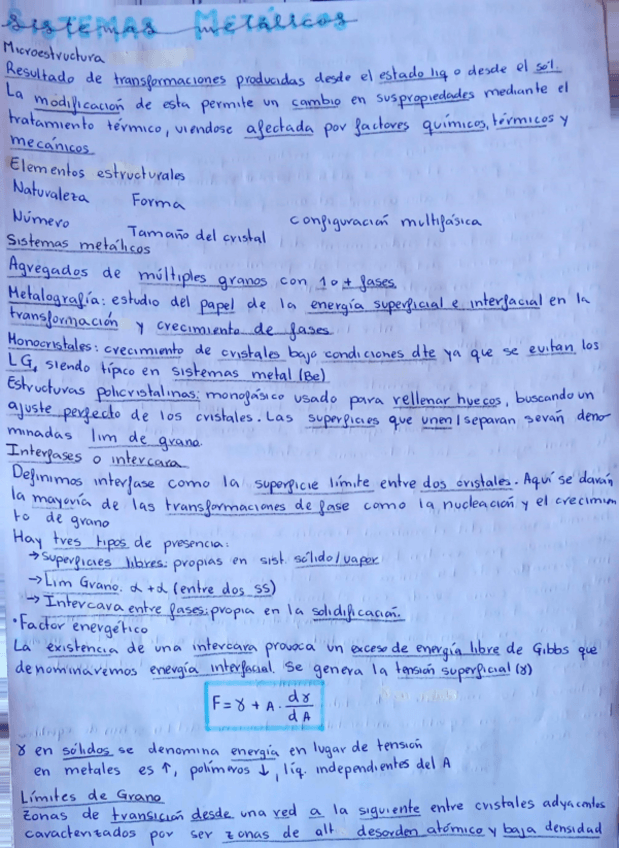 SISTEMAS METÁLICOS
Microestructura
Resultado de transformaciones producidas desde el estado liq o desde el sol.
La modificación de esta permite un cambio en sus propiedades mediante el
tratamiento térmico, viendose afectada por factores químicos, térmicos y
mecánicos
Elementos estructurales
Naturaleza Forma
Número Tamaño del cristal configuración multifásica
Sistemas metálicos
Agregados de múltiples granos con 1 o + fases
Metalografía: estudio del papel de la energía superficial e interfacial en la
transformación y crecimiento de fases
Monocristales: crecimiento de cristales bajo condiciones dte ya que se evitan los
LG, siendo típico en sistemas metal (Be)
Estructuras policristalinas: monofásico usado para rellenar huecos, buscando un
ajuste perfecto de los cristales. Las superficies que unen/separan serán deno-
minadas lim de grano.
Interfases o intercara
Definimos interfase como la superficie límite entre dos cristales. Aquí se darán
la mayoría de las transformaciones de fase como la nucleación y el crecimien
to de grano
Hay tres tipos de presencia:
→ Superficies libres: propias en sist. sólido/vapor
→ Lim Grano: α+α (entre dos ss)
→ Intercara entre fases: propia en la solidificación.
• Factor energético
La existencia de una intercara provoca un exceso de energía libre de Gibbs que
denominaremos energía interfacial. Se genera la tensión superficial (γ)
F = γ + A · dγ/dA
γ en sólidos se denomina energía en lugar de tensión
en metales es ↑, polímeros ↓, líq. independientes del A
Límites de Grano
Zonas de transición desde una red a la siguiente entre cristales adyacentes
caracterizados por ser zonas de alt desorden atómico y baja densidad